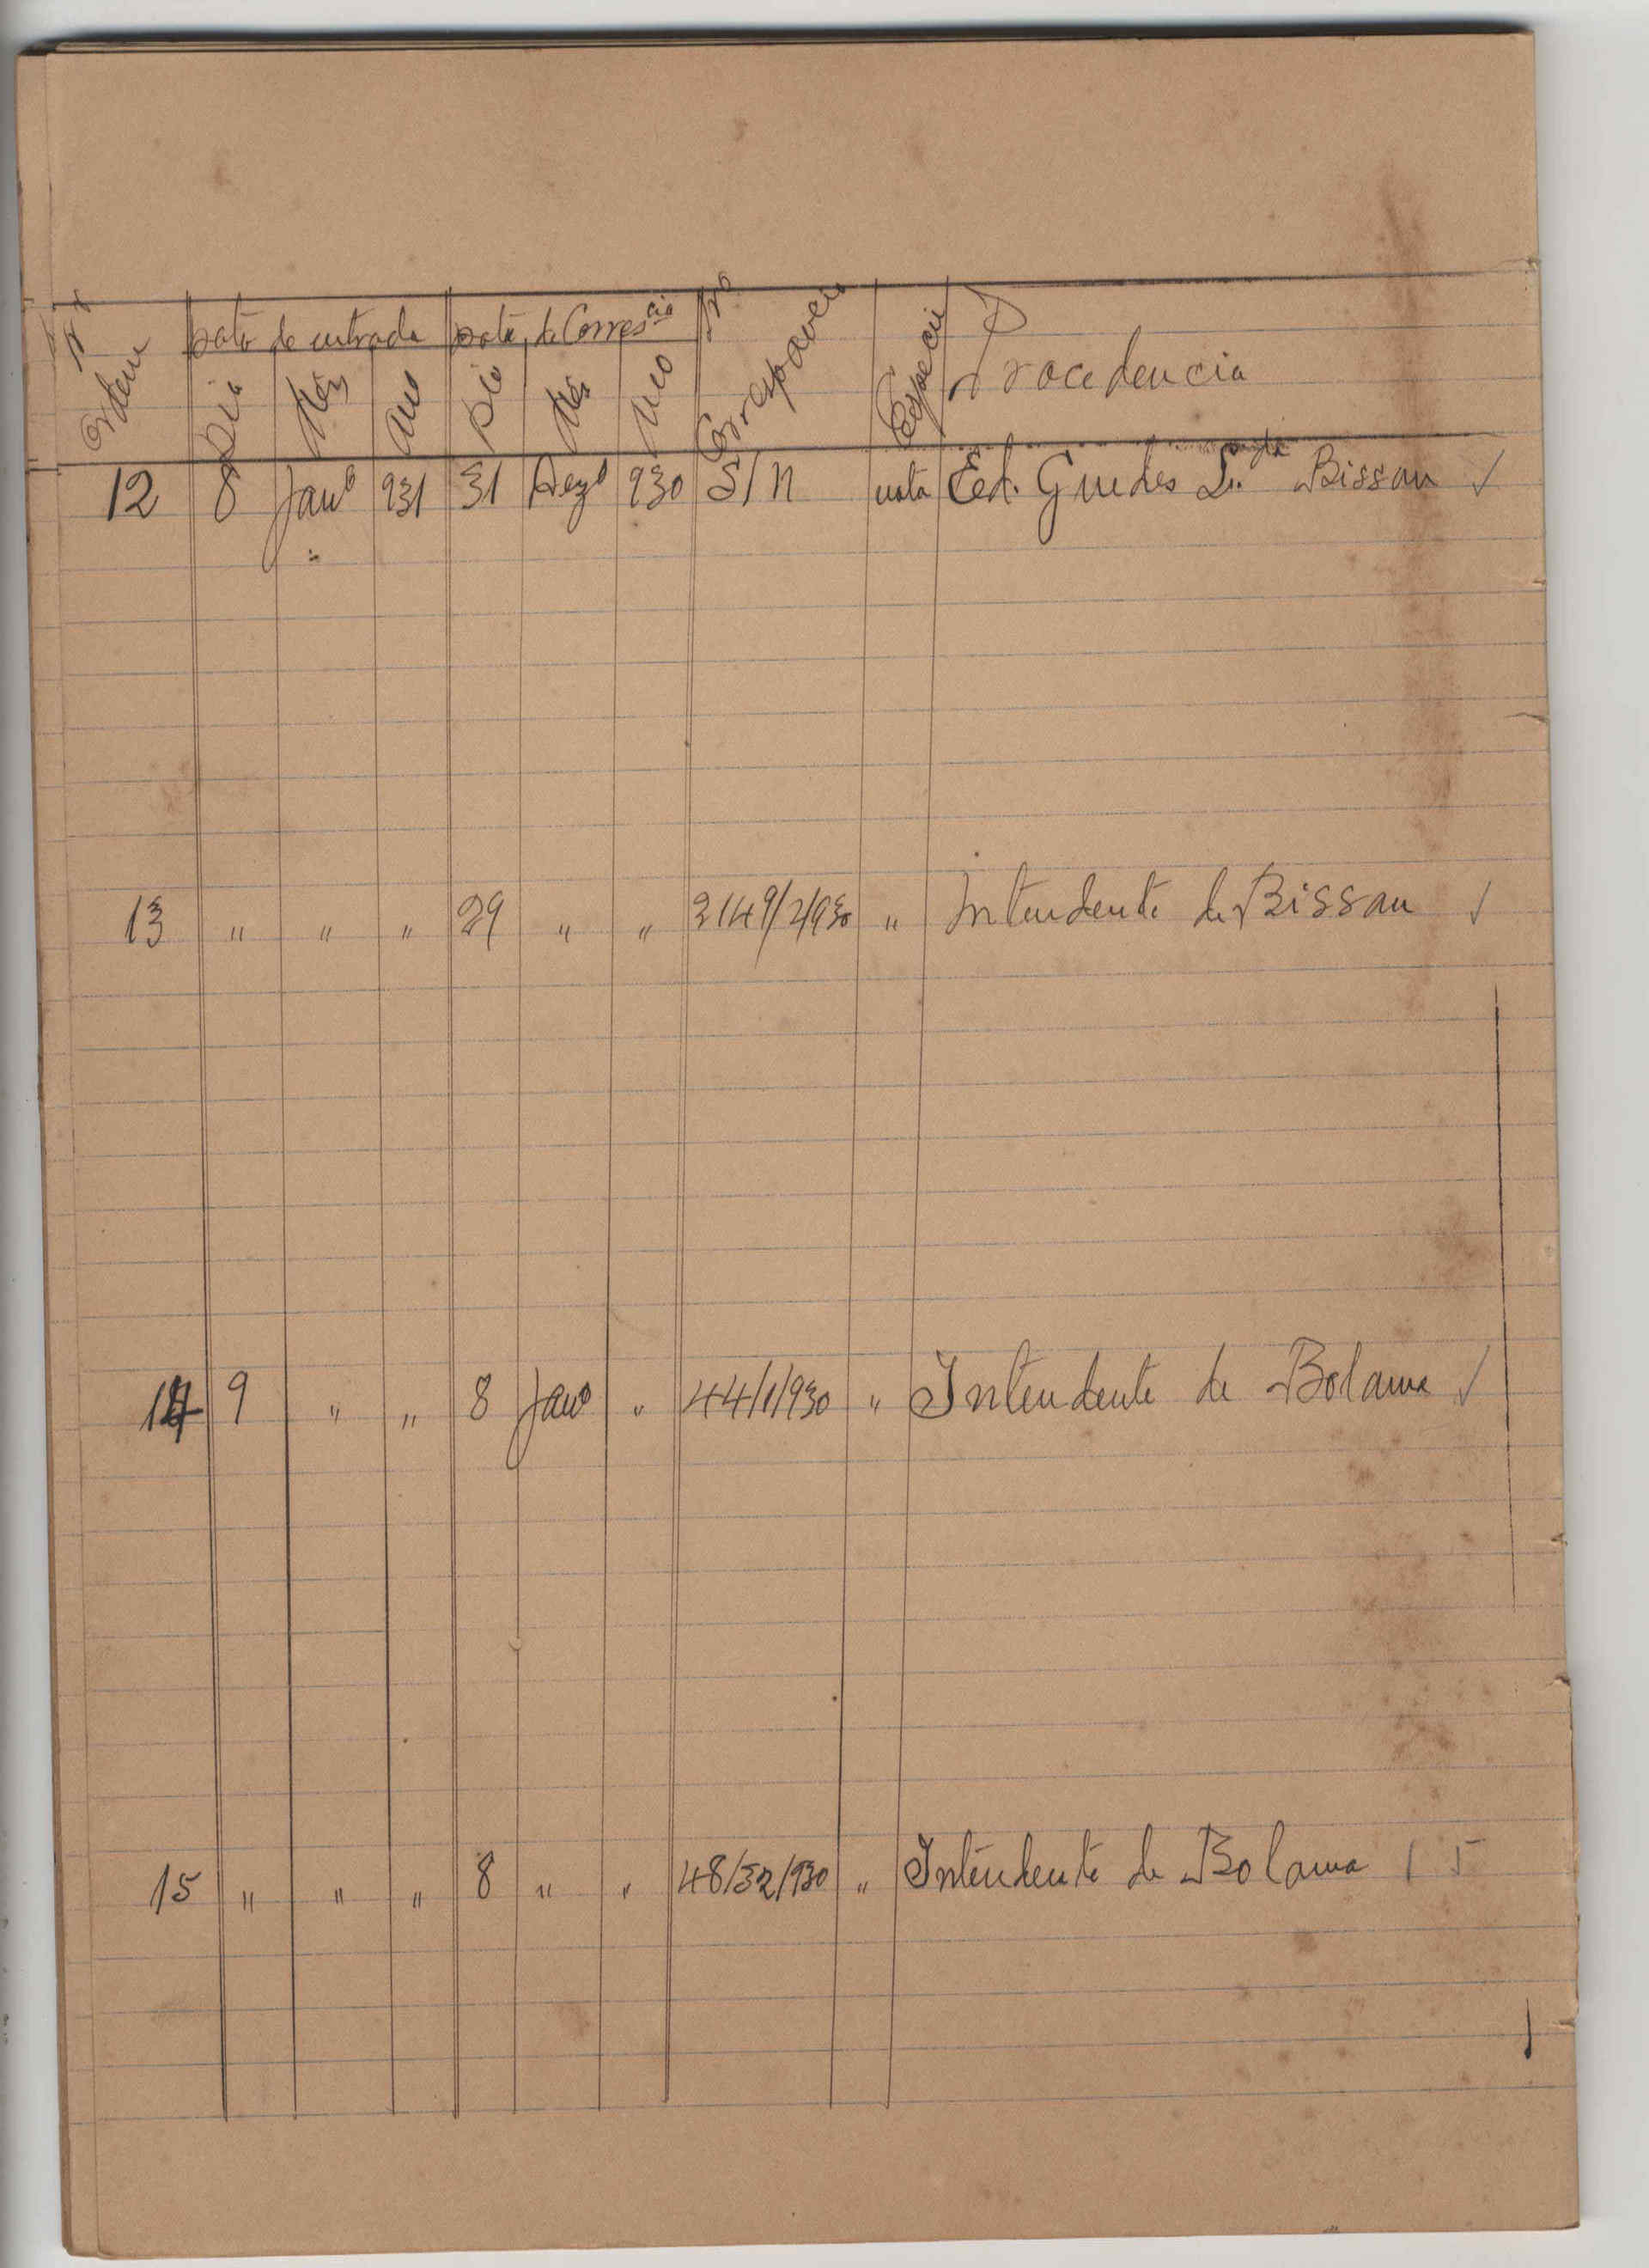 Nº Ordem Data de entrada Data de Corres.cia Nº Correspondencia Especie Procedencia
Dia Mês Ano Dia Mês Ano
12 8 Janº 931 31 Dezº 930 S/N nota Ed. Guedes Lda Bissau ✓
13 " " " 29 " " 3149/2/930 " Intendente de Bissau ✓
14 9 " " 8 Janº " 44/1/930 " Intendente de Bolama ✓
15 " " " 8 " " 48/32/930 " Intendente de Bolama